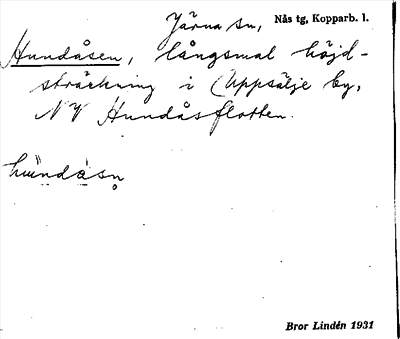 Järna sn, Nås tg, Kopparb. l.
Hundåsen, långsmal höjd-
sträckning i Uppsälje by,
NV Hundåsflotten.
hundåsn̥
Bror Lindén 1931